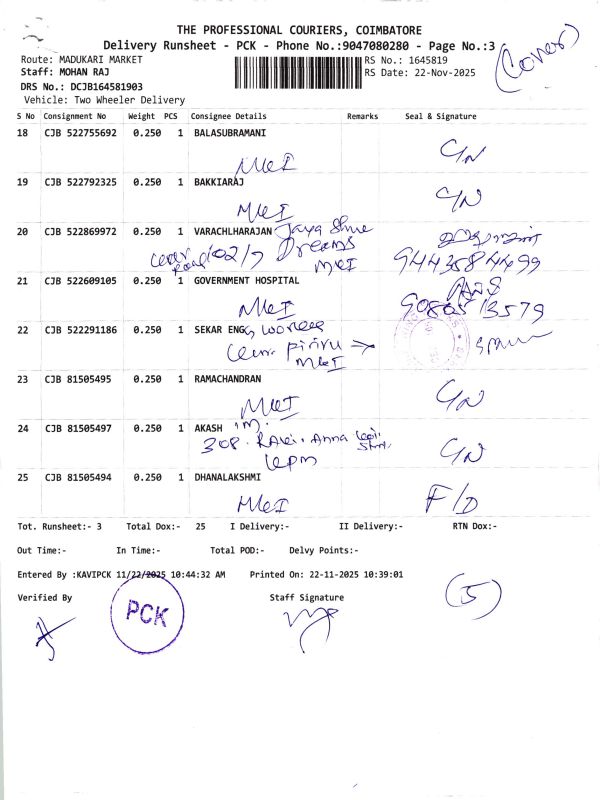 THE PROFESSIONAL COURIERS, COIMBATORE
Delivery Runsheet - PCK - Phone No.:9047080280 - Page No.:3
(Cover)
Route: MADUKARI MARKET
RS No.: 1645819
Staff: MOHAN RAJ
RS Date: 22-Nov-2025
DRS No.: DCJB164581903
Vehicle: Two Wheeler Delivery
S No Consignment No Weight PCS Consignee Details Remarks Seal & Signature
18 CJB 522755692 0.250 1 BALASUBRAMANI
C/N
19 CJB 522792325 0.250 1 BAKKIARAJ
C/N
20 CJB 522869972 0.250 1 VARACHLHARAJAN Jaya Shree
Dreams
9443584499
21 CJB 522609105 0.250 1 GOVERNMENT HOSPITAL
9080513579
22 CJB 522291186 0.250 1 SEKAR ENGG
23 CJB 81505495 0.250 1 RAMACHANDRAN
C/N
24 CJB 81505497 0.250 1 AKASH .M.
308. Anna
C/N
25 CJB 81505494 0.250 1 DHANALAKSHMI
F/D
Tot. Runsheet:- 3 Total Dox:- 25 I Delivery:- II Delivery:- RTN Dox:-
Out Time:- In Time:- Total POD:- Delvy Points:-
Entered By :KAVIPCK 11/22/2025 10:44:32 AM Printed On: 22-11-2025 10:39:01
Verified By Staff Signature
PCK
(5)